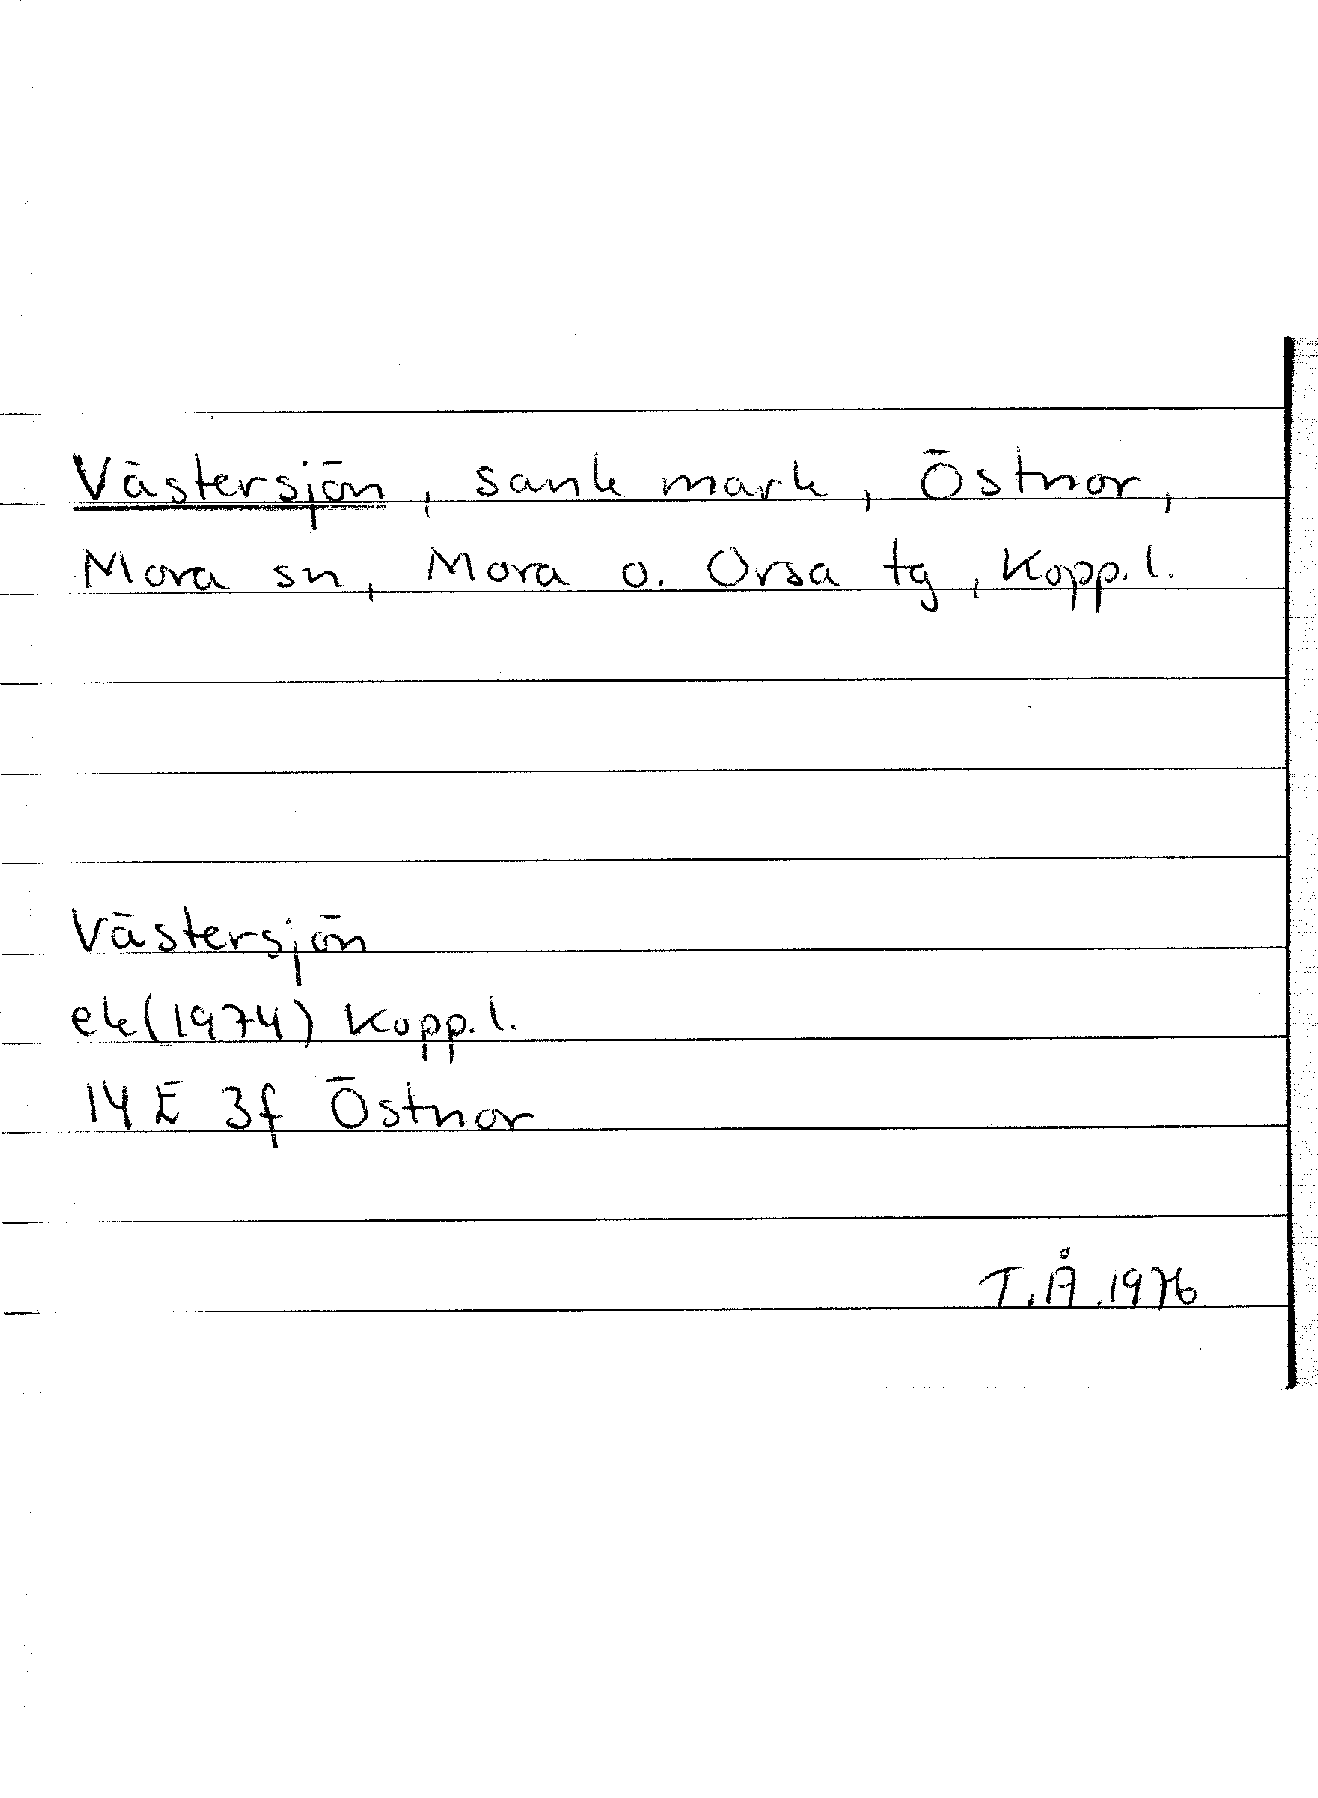 Västersjön, sank mark, Östnor,
Mora sn, Mora o. Orsa tg, Kopp. l.
Västersjön
ek (1974) Kopp. l.
14 E 3f Östnor
T.Å. 1976